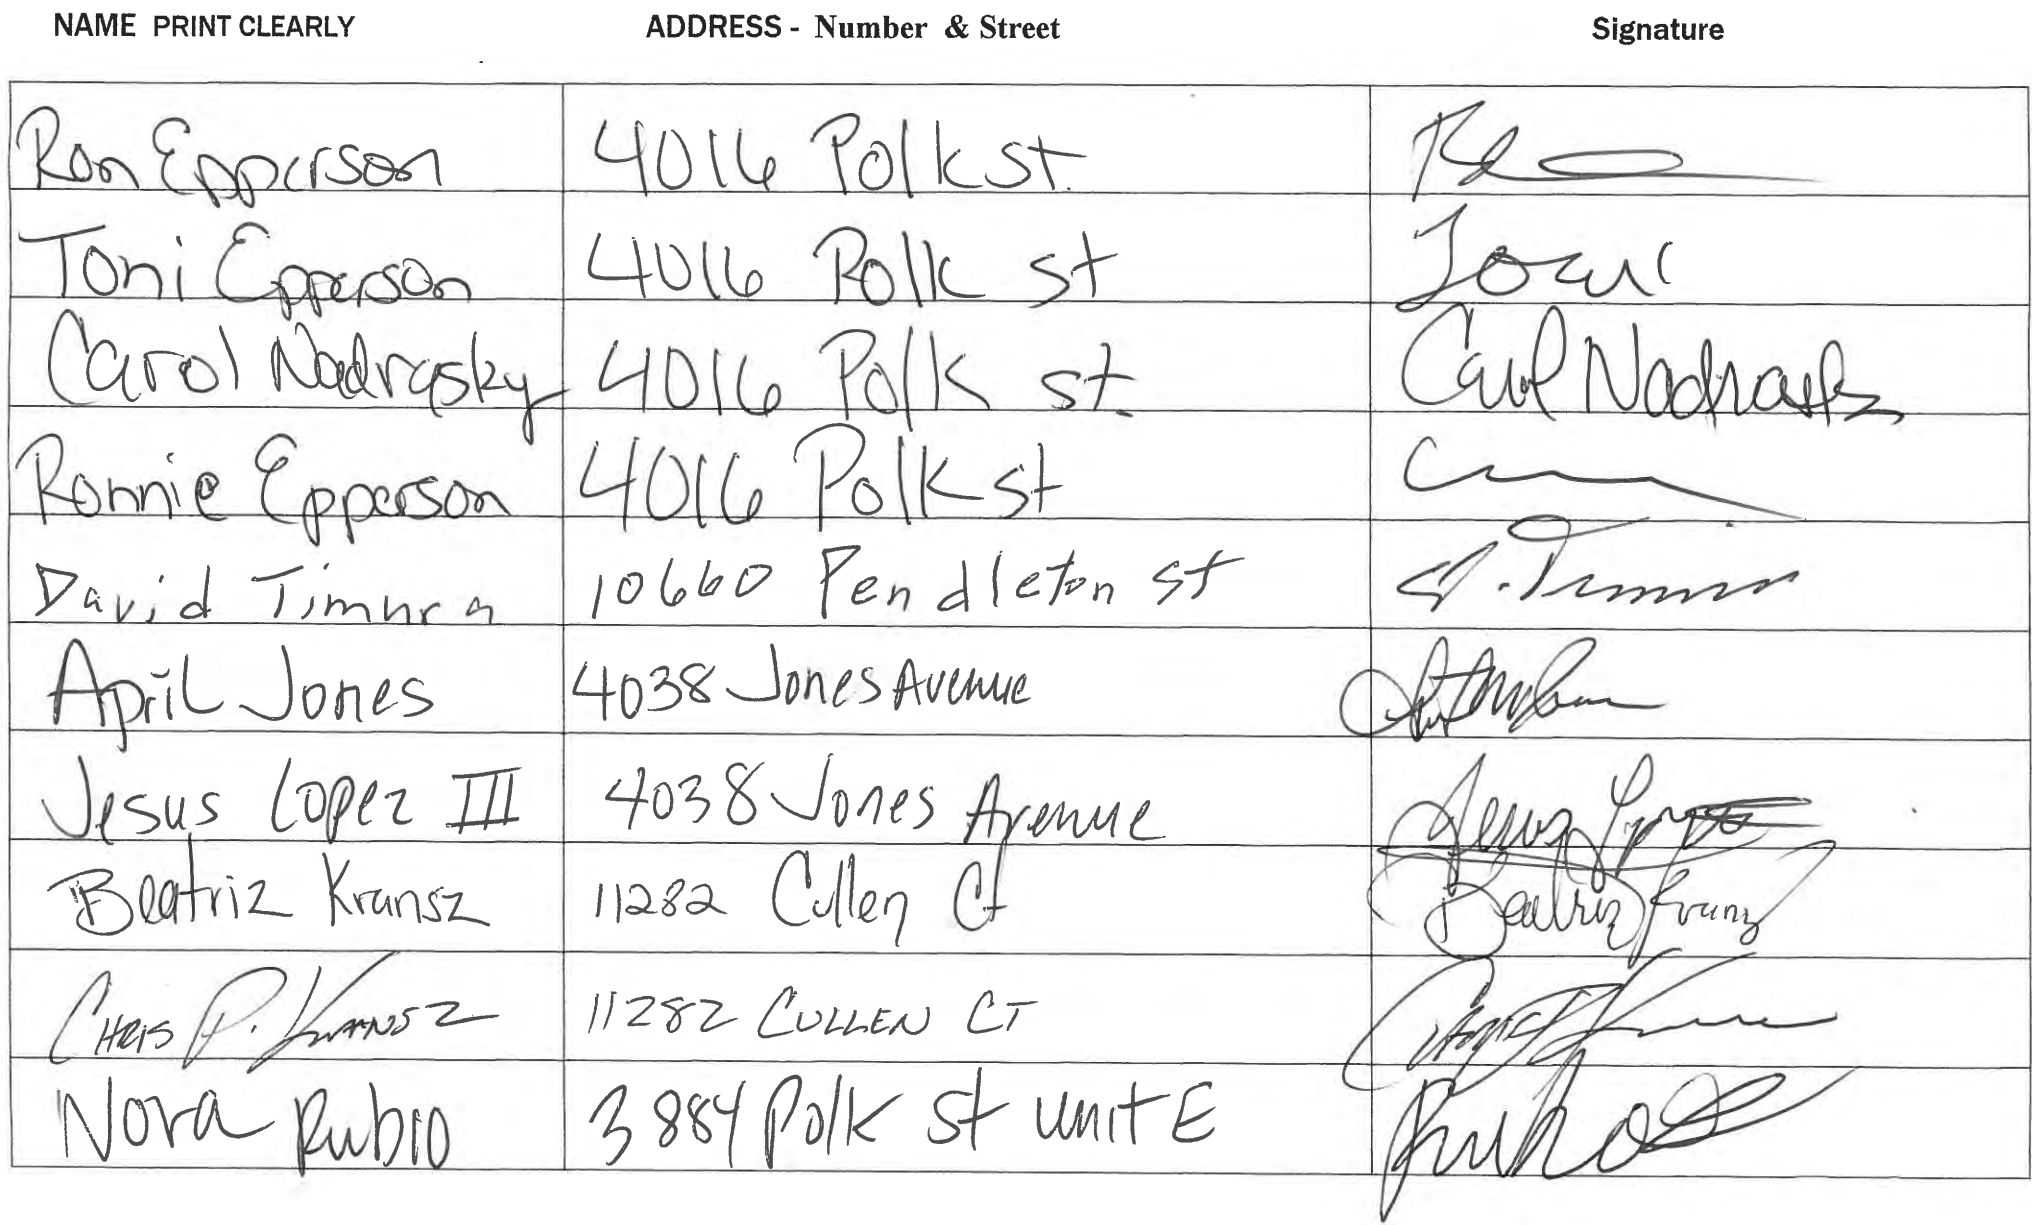 NAME PRINT CLEARLY ADDRESS - Number & Street Signature
Ron Epperson 4016 Polk st.
Toni Epperson 4016 Polk st Toni
Carol Nadrasky 4016 Polk st. Carol Nadrasky
Ronnie Epperson 4016 Polk st
David Timura 10660 Pendleton st
April Jones 4038 Jones Avenue
Jesus Lopez III 4038 Jones Avenue Jesus Lopez
Beatriz Kransz 11282 Cullen Ct Beatriz Kransz
CHRIS P. KRANSZ 11282 CULLEN CT
Nora Rubio 3884 Polk st unit E